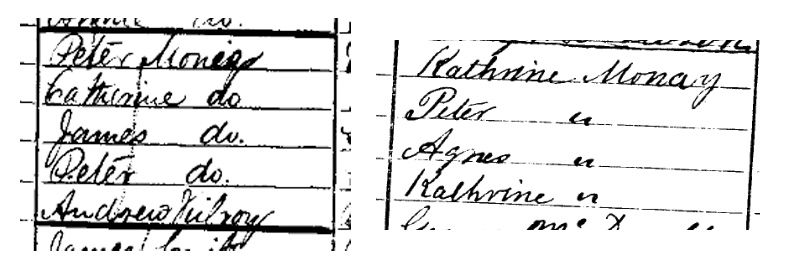 do.
Peter Money
Catherine do
James do.
Peter do.
Andrew Kilroy
James
Kathrine Monay
Peter "
Agnes "
Kathrine "
Mc